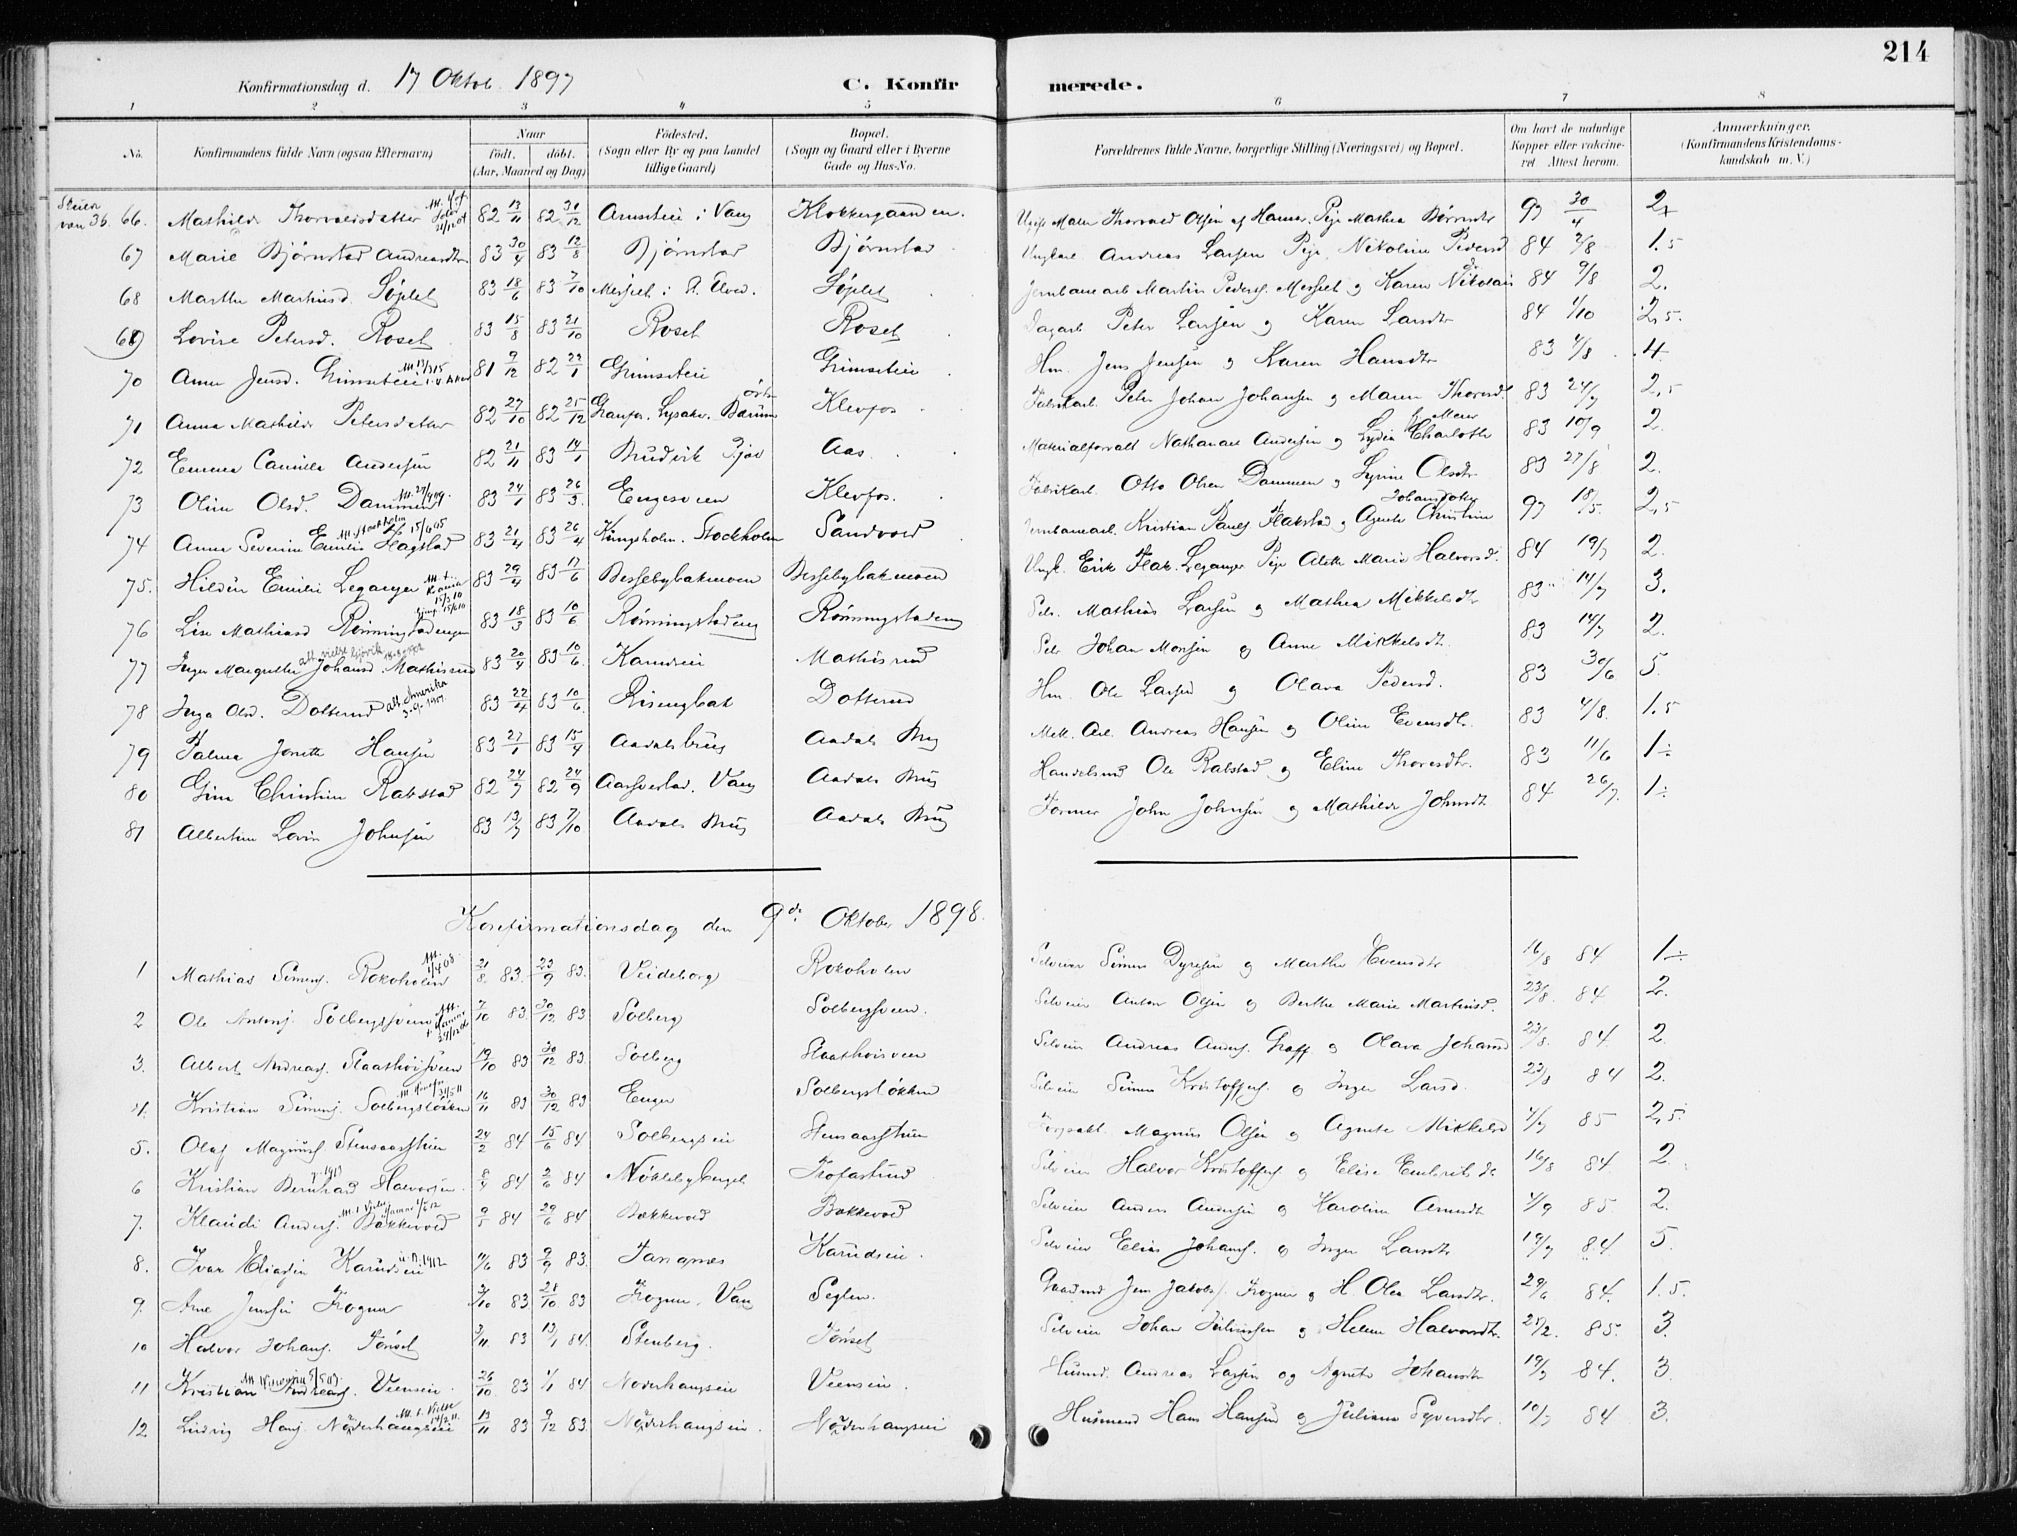 214
Konfirmationsdag d. 17 Oktob. 1897 C. Konfirmerede.
1 2 3 4 5 6 7 8
No. Konfirmandens fulde Navn (ogsaa Efternavn) Naar født. døbt. (Aar, Maaned og Dag) Fødested. (Sogn eller By og paa Landet tillige Gaard) Bopæl. (Sogn og Gaard eller i Byerne Gade og Hus-No. Forældrenes fulde Navne, borgerlige Stilling (Næringsvei) og Bopæl. Om havt de naturlige Kopper eller vaccineret. Attest herom. Anmærkninger. (Konfirmandens Kristendomskundskab m. V.)
66. Mathilde Thorvaldsdatter 82 13/11 82 30/12 Arnseteie i Vang Klokkergaarden. Thorvald Olsen af Hamar. Pige Mathea 97 30/4 2
67 Marie Bjørnstad Andreasdtr 83 30/4 83 12/8 Bjørnstad Bjørnstad Ungkarl Andreas Larsen Pige Nikoline Pedersd. 84 2/8 1.5
68 Marthe Martinsd. Søplet 83 18/6 83 7/10 Messelt i St. Elved. Søplet Jernbanearb Martin Peders. Messelt og Karen Nikolais 84 9/8 2.
69 Lovise Petersd. Roset 83 15/8 83 21/10 Roset Roset Dagarb Peter Larsen og Karen Larsdtr 84 1/10 2,5.
70 Anna Jensd. Grimseteie 81 9/12 82 22/1 Grimseteie Grimseteie Hm. Jens Jensen og Karen Hansdtr 83 4/8 4
71 Anna Mathilde Petersdatter 82 27/10 82 25/12 Granfos. Lysaker. Bærum Klevfos Fabrikarb. Peter Johan Johansen og Maren Thoresd. 83 24/7 2,5
72 Emma Camilla Andersen 82 21/11 83 14/1 Brudvik Aas Materialforvalt Nathanael Andersen og Lydia Charlotte 83 10/9 2.
73 Oline Olsd. Dammen 83 24/1 83 26/3 Engesveen Klevfos. Fabrikarb. Otto Olsen Dammen og Syrine Olsdtr. 83 27/8 2.
74 Anna Severine Emilie Hagstad 83 21/4 83 26/4 Kungsholm. Stockholm Sandvold Jernbanearb. Kristian Pauls. Hakstad og Agnete Christine Johansdatter 97 18/5. 2,5
75. Hilda Emilie Leganger 83 29/4 83 17/6 Bessebybakmoen Bessebybakmoen Ungk. Erik Leganger Pige Alette Marie Halvorsd. 84 19/7 2.
76 Lise Mathiasd Rønningstadengen 83 18/3 83 10/6 Rønningstadeng Rønningstadeng Selv. Mathias Larsen og Mathea Mikkelsdtr 83 14/7 3.
77 Inger Margrethe Johansd. Mathisrud 83 20/4 83 10/6. Mathisrud Selv Johan Monsen og Anne Mikkelsdt. 83 14/7 2.
78 Inga Olsd. Dotterud att. Amerika 83 22/4 83 10/6. Risengbak Dotterud Hm. Ole Larsen og Olava Pedersd. 83 30/6 5.
79 Palma Jonette Hansen 83 27/1 83 15/4 Aadalsbrug Aadals Brug Mek. Arb. Andreas Hansen og Oline Evensdt. 83 4/8. 1.5
80 Gina Christine Rakstad 82 24/7 82 24/9 Vang Aadals Brug Handelsmd Ole Rakstad og Eline Thoresdtr. 83 11/6 1÷
81 Albertine Lovise Johnsen 83 13/7 83 7/10 Aadals Brug Aadals Brug Former John Johnsen og Mathilde Johnsdt 84 26/7. 1÷
Konfirmationsdag den 9de Oktober 1898.
1 Mathias Simens. Rokoholen 21/8 83. 23/9 83. Veideborg Rokoholen Selveier Simen Dyresen og Marthe Evensdtr 16/8 84 1÷
2 Ole Antons. Solbergsveen 7/10 83 30/12 83 Solberg Solbergsveen. Selveier Anton Olsen og Berthe Marie Martinsd. 23/8. 84 2.
3. Albert Andreas. Staathøisveen 19/10 83 30/12 83. Solberg Staathøisveen Selveier Andreas Anders. Graff og Olava Johansd 23/8. 84. 2.
4. Kristian Simens. Solbergsløkken 16/11 83 30/12 83 Enger Solbergsløkken Selveier Simen Kristoffers. og Inger Larsd. 23/8 84 2.
5. Olaf Magnus. Stensaasstuen 24/2 84 15/6 84 Solbergseie Stensaasstuen Magnus Olsen og Agnete Mikkelsd 4/7 85 2,5
6 Kristian Bernhard Halvorsen. 8/4 84 2/6 84 Nøklebyberget Trofastrud Selveier Halvor Kristoffers og Elise Embrets dr 16/8 84. 2
7. Klaudi Anders. Bakkevold 9/5 84 29/6 84 Bækkevold Bakkevold Selveier Anders Andersen og Karoline Arnesdt 4/9 85. 2.
8. Ivar Eliasen Karudseie 11/6 83 9/9 83. Tangnes Karudseie. Selveier Elias Johans. og Inger Larsdtr 19/7 84. 5.
9. Arne Jensen Frogner 3/10 83 28/10 83 Frogner. Vang Seglen. Gaardmd Jens Jakobs. Frogner og H. Olea Larsdtr. 29/6 84. 1.5.
10 Halvor Johans. Tønset 3/11. 83 13/1 84. Stenberg. Tønset Selveier Johan Julinssen og Helene Halvorsdtr. 25/2. 85. 3.
11 Kristian Andreas. Veenseie. 26/10 83 1/1 84 Nøderhangseie Veenseie. Husmd. Andreas Larsen og Agnete Johansdtr 19/7 84. 3.
12 Ludvig Hans. Nøderhangseie 13/11 83 9/12 83. Nøderhangseie. Nøderhangseie Husmand Hans Hansen og Juliane Syversdtr. 10/7 84 3.